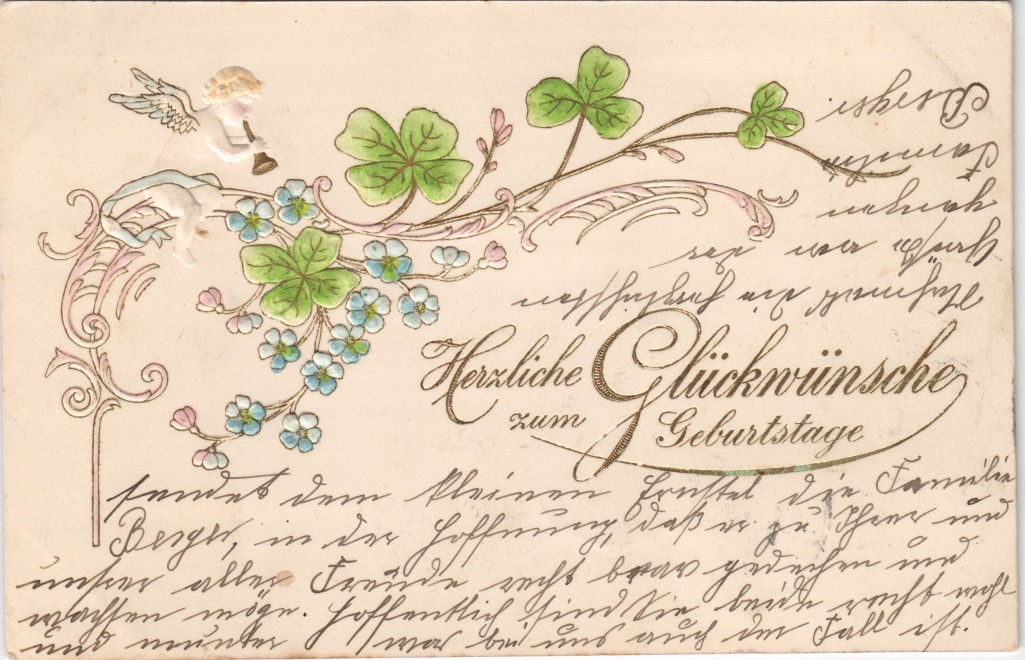 Herzliche Glückwünsche
zum Geburtstage
sendet dem kleinen Ernstel die Familie
Berger, in der Hoffnung, daß er zu Ihrer und
unsrer aller Freude recht brav gedeihen und
wachsen möge. Hoffentlich sind Sie beide recht wohl
und munter was bei uns auch der Fall ist.
Nochmals die herzlichsten
Grüße von der
ganzen
Familie